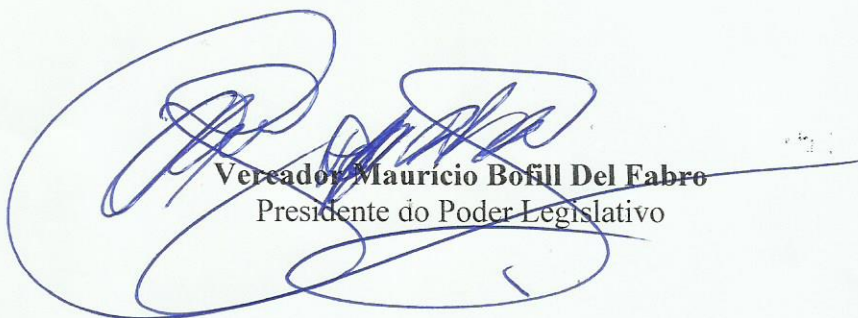 Vereador Mauricio Bofill Del Fabro
Presidente do Poder Legislativo